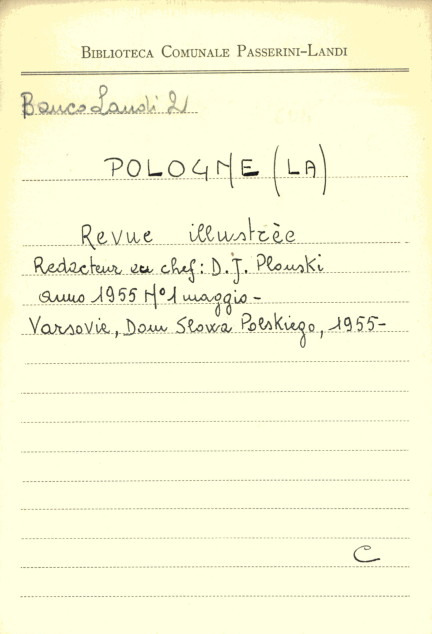 BIBLIOTECA COMUNALE PASSERINI-LANDI
Banco Landi 21
POLOGNE (LA)
Revue illustrèe
Redacteur en chef: D.J. Plouski
anno 1955 N° 1 maggio -
Varsovie, Dom Slowa Polskiego, 1955-
C